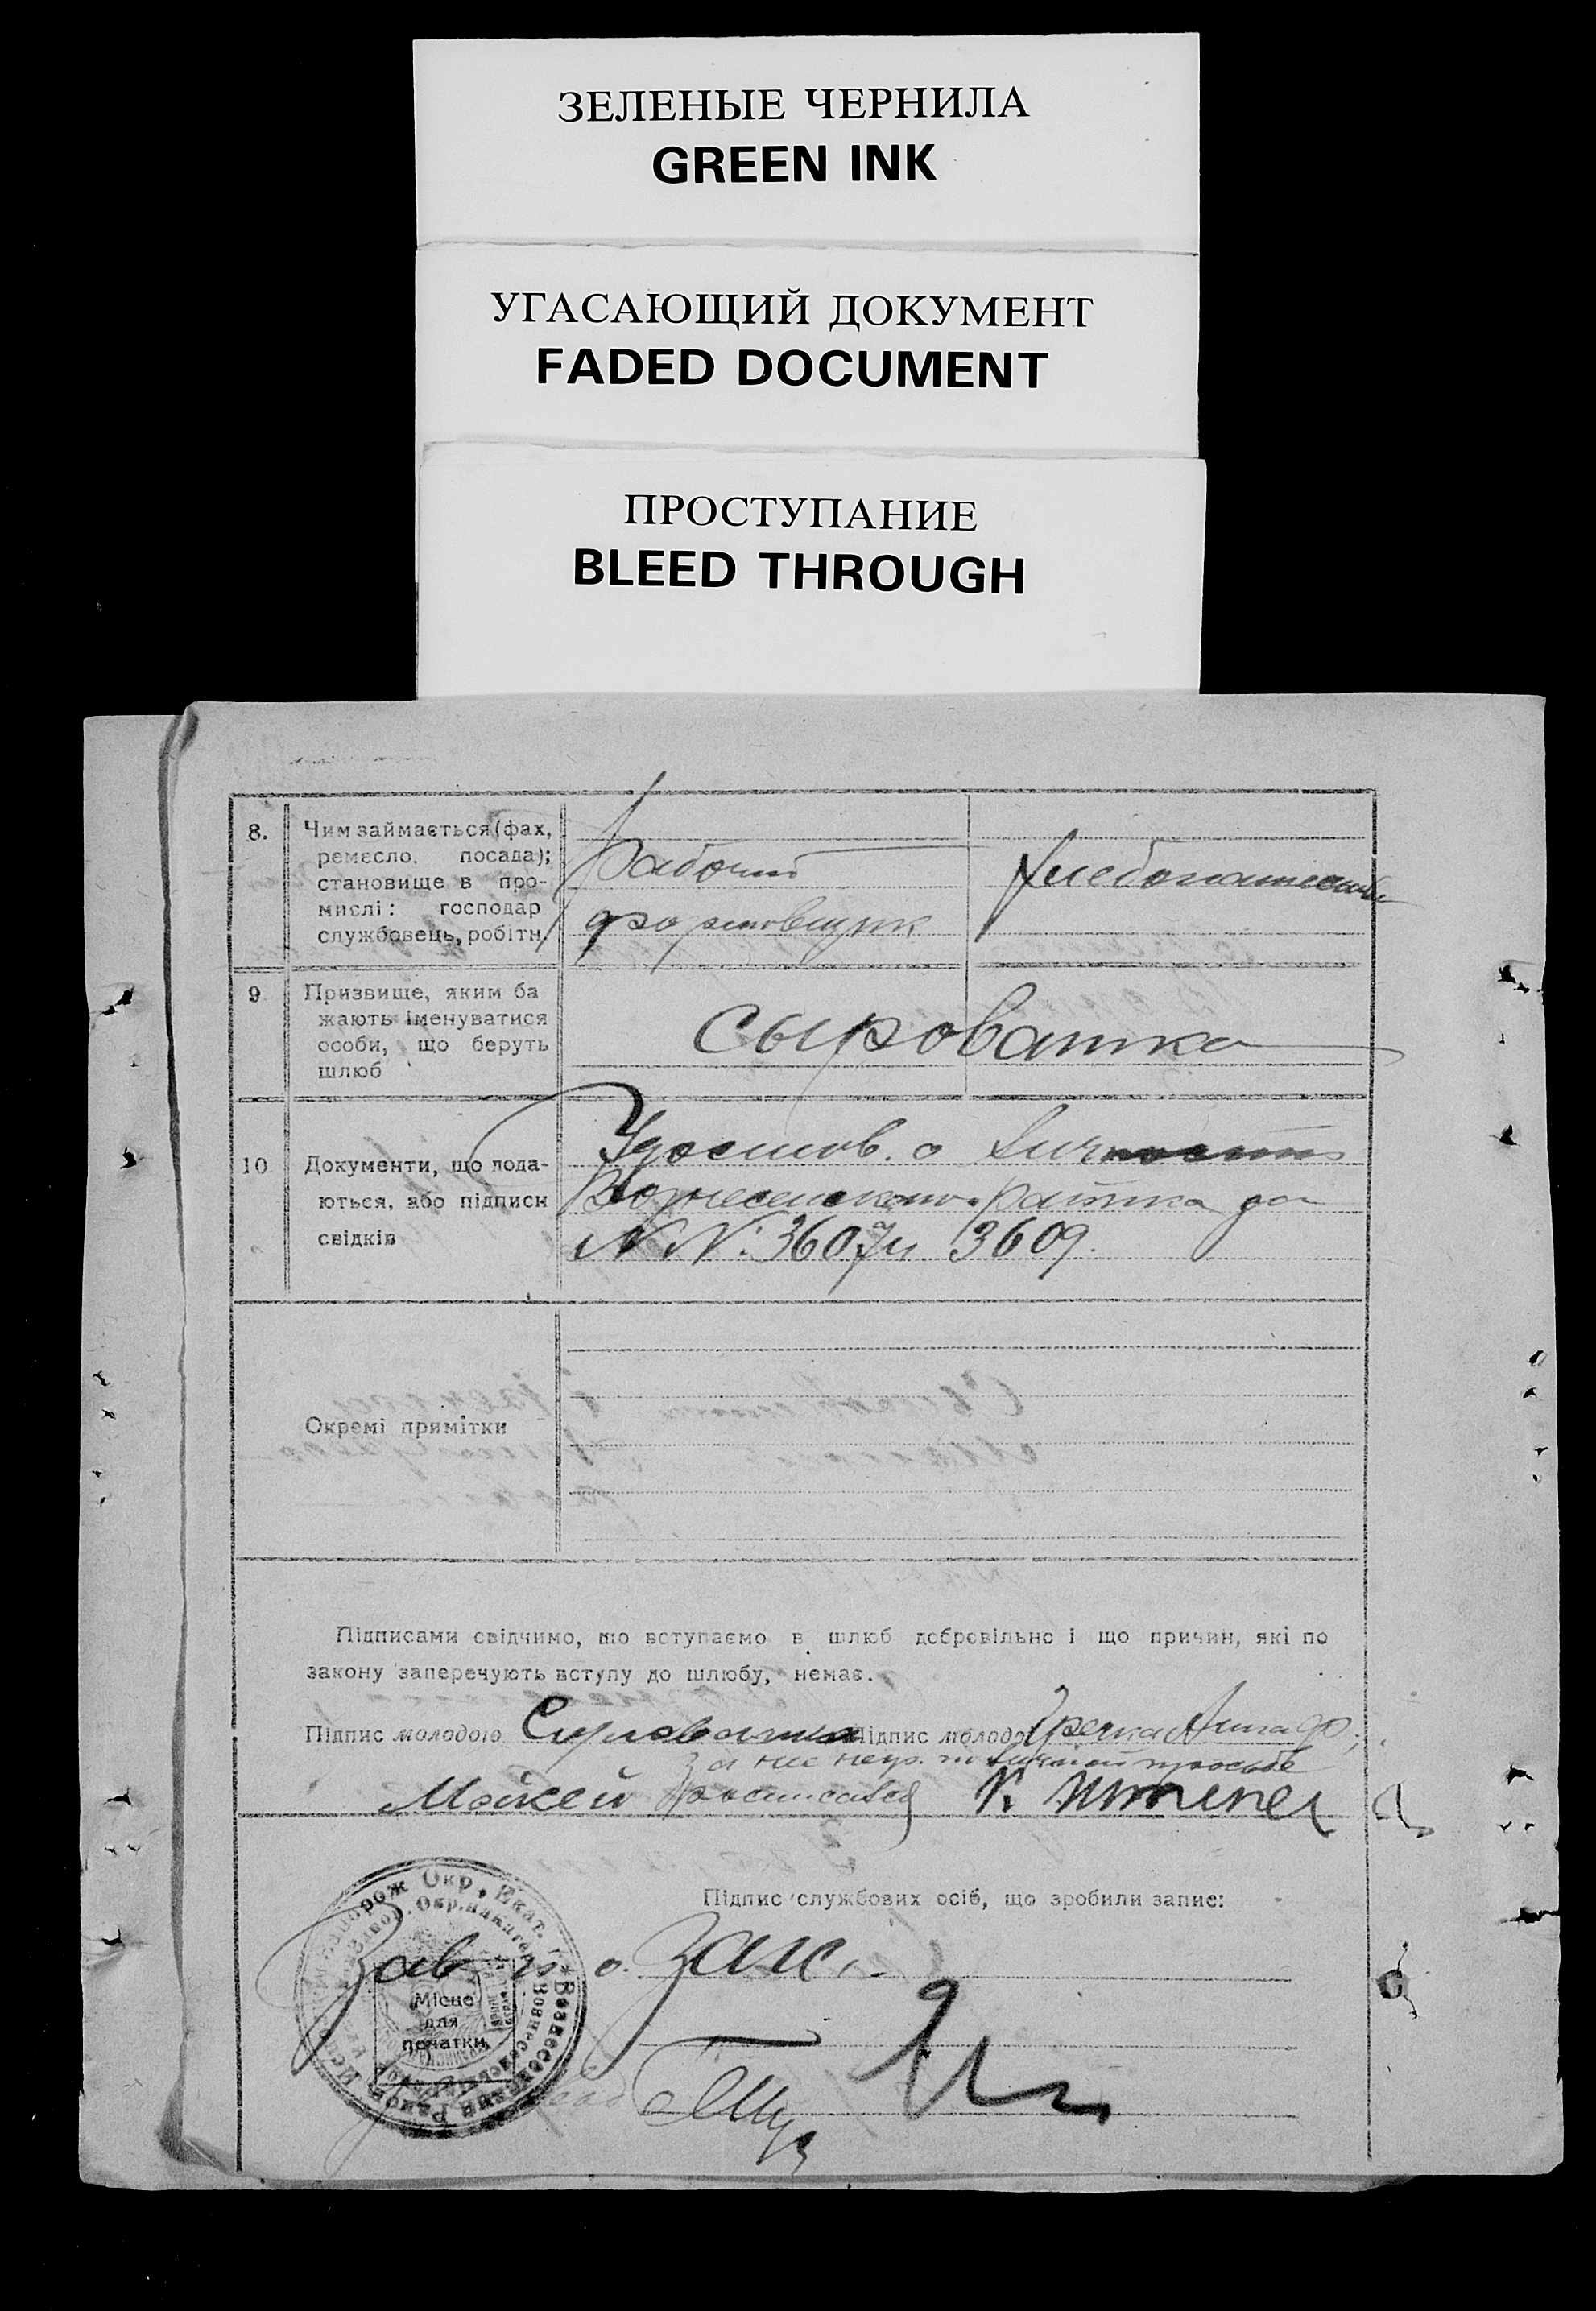 ЗЕЛЕНЫЕ ЧЕРНИЛА
GREEN INK
УГАСАЮЩИЙ ДОКУМЕНТ
FADED DOCUMENT
ПРОСТУПАНИЕ
BLEED THROUGH
8.
Чим займається (фах,
ремесло, посада);
становище в про-
мислі: господар
службовець, робітн.
Рабочий
формовщик
Хлебопашество
9
Призвище, яким ба
жають іменуватися
особи, що беруть
шлюб
Сыроватка
10
Документи, що пода-
ються, або підписи
свідків
Удостов. о личности
Вознесенского Райпка за
NN: 3607 и 3609.
Окремі примітки
Підписами свідчимо, що вступаємо в шлюб добровільно і що причин, які по
закону заперечують вступу до шлюбу, немає.
Підпис молодого Сыроватка Підпис молодо Гречка Анна
за нее негр. по личной просьбе
Мойсей росписався
Підпис службових осіб, що зробили запис:
Зав п о. Загс.
Місце
для
печатки